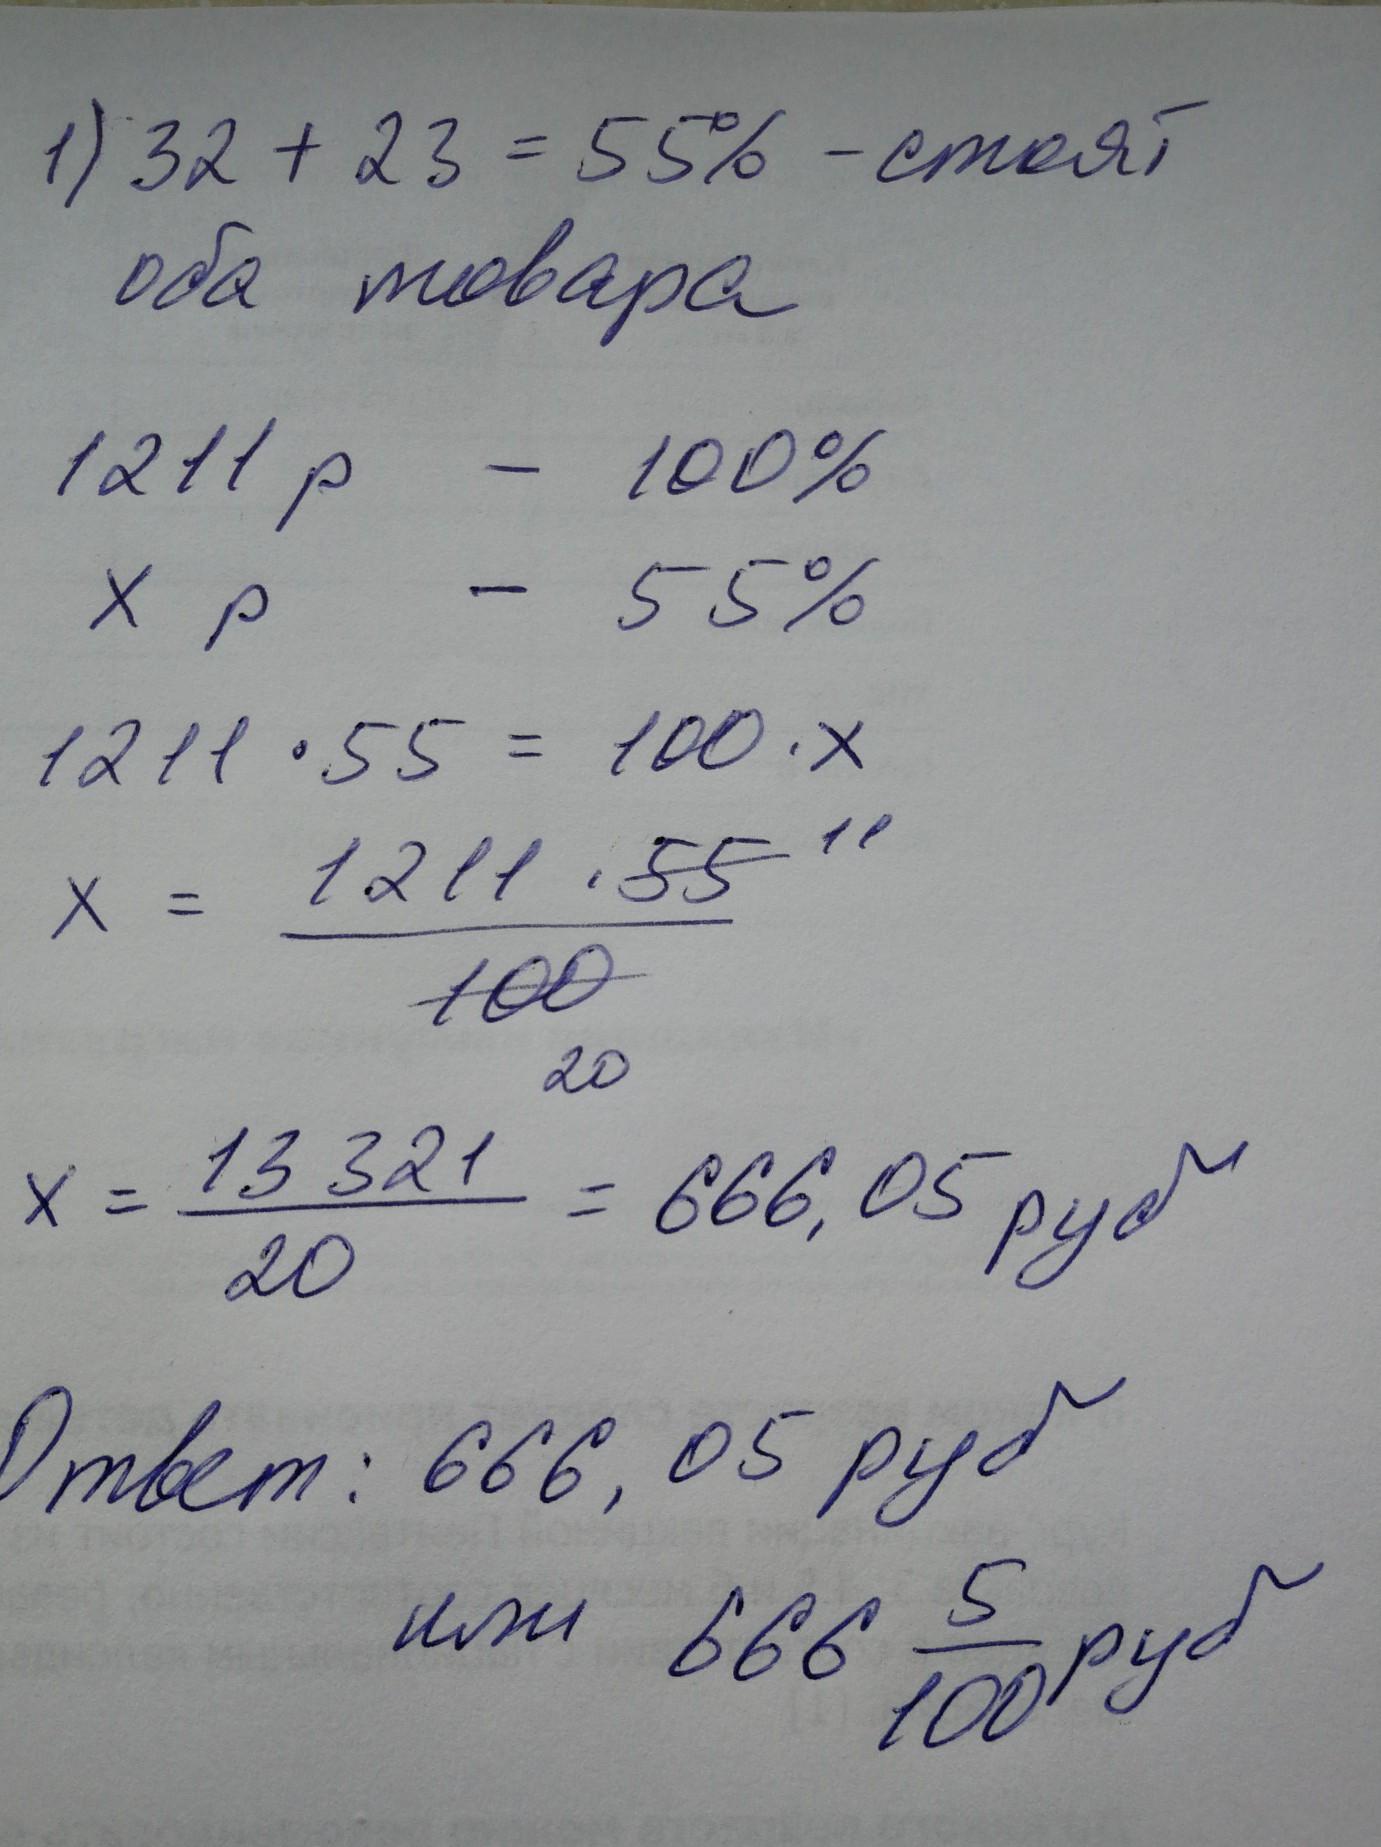 1) 32 + 23 = 55% - стоят
оба товара
1211 р - 100%
х р - 55%
1211 · 55 = 100 · х
х = 1211 · 55 11
100
20
х = 13 321 / 20 = 666,05 руб
Ответ: 666,05 руб
или 666 5/100 руб